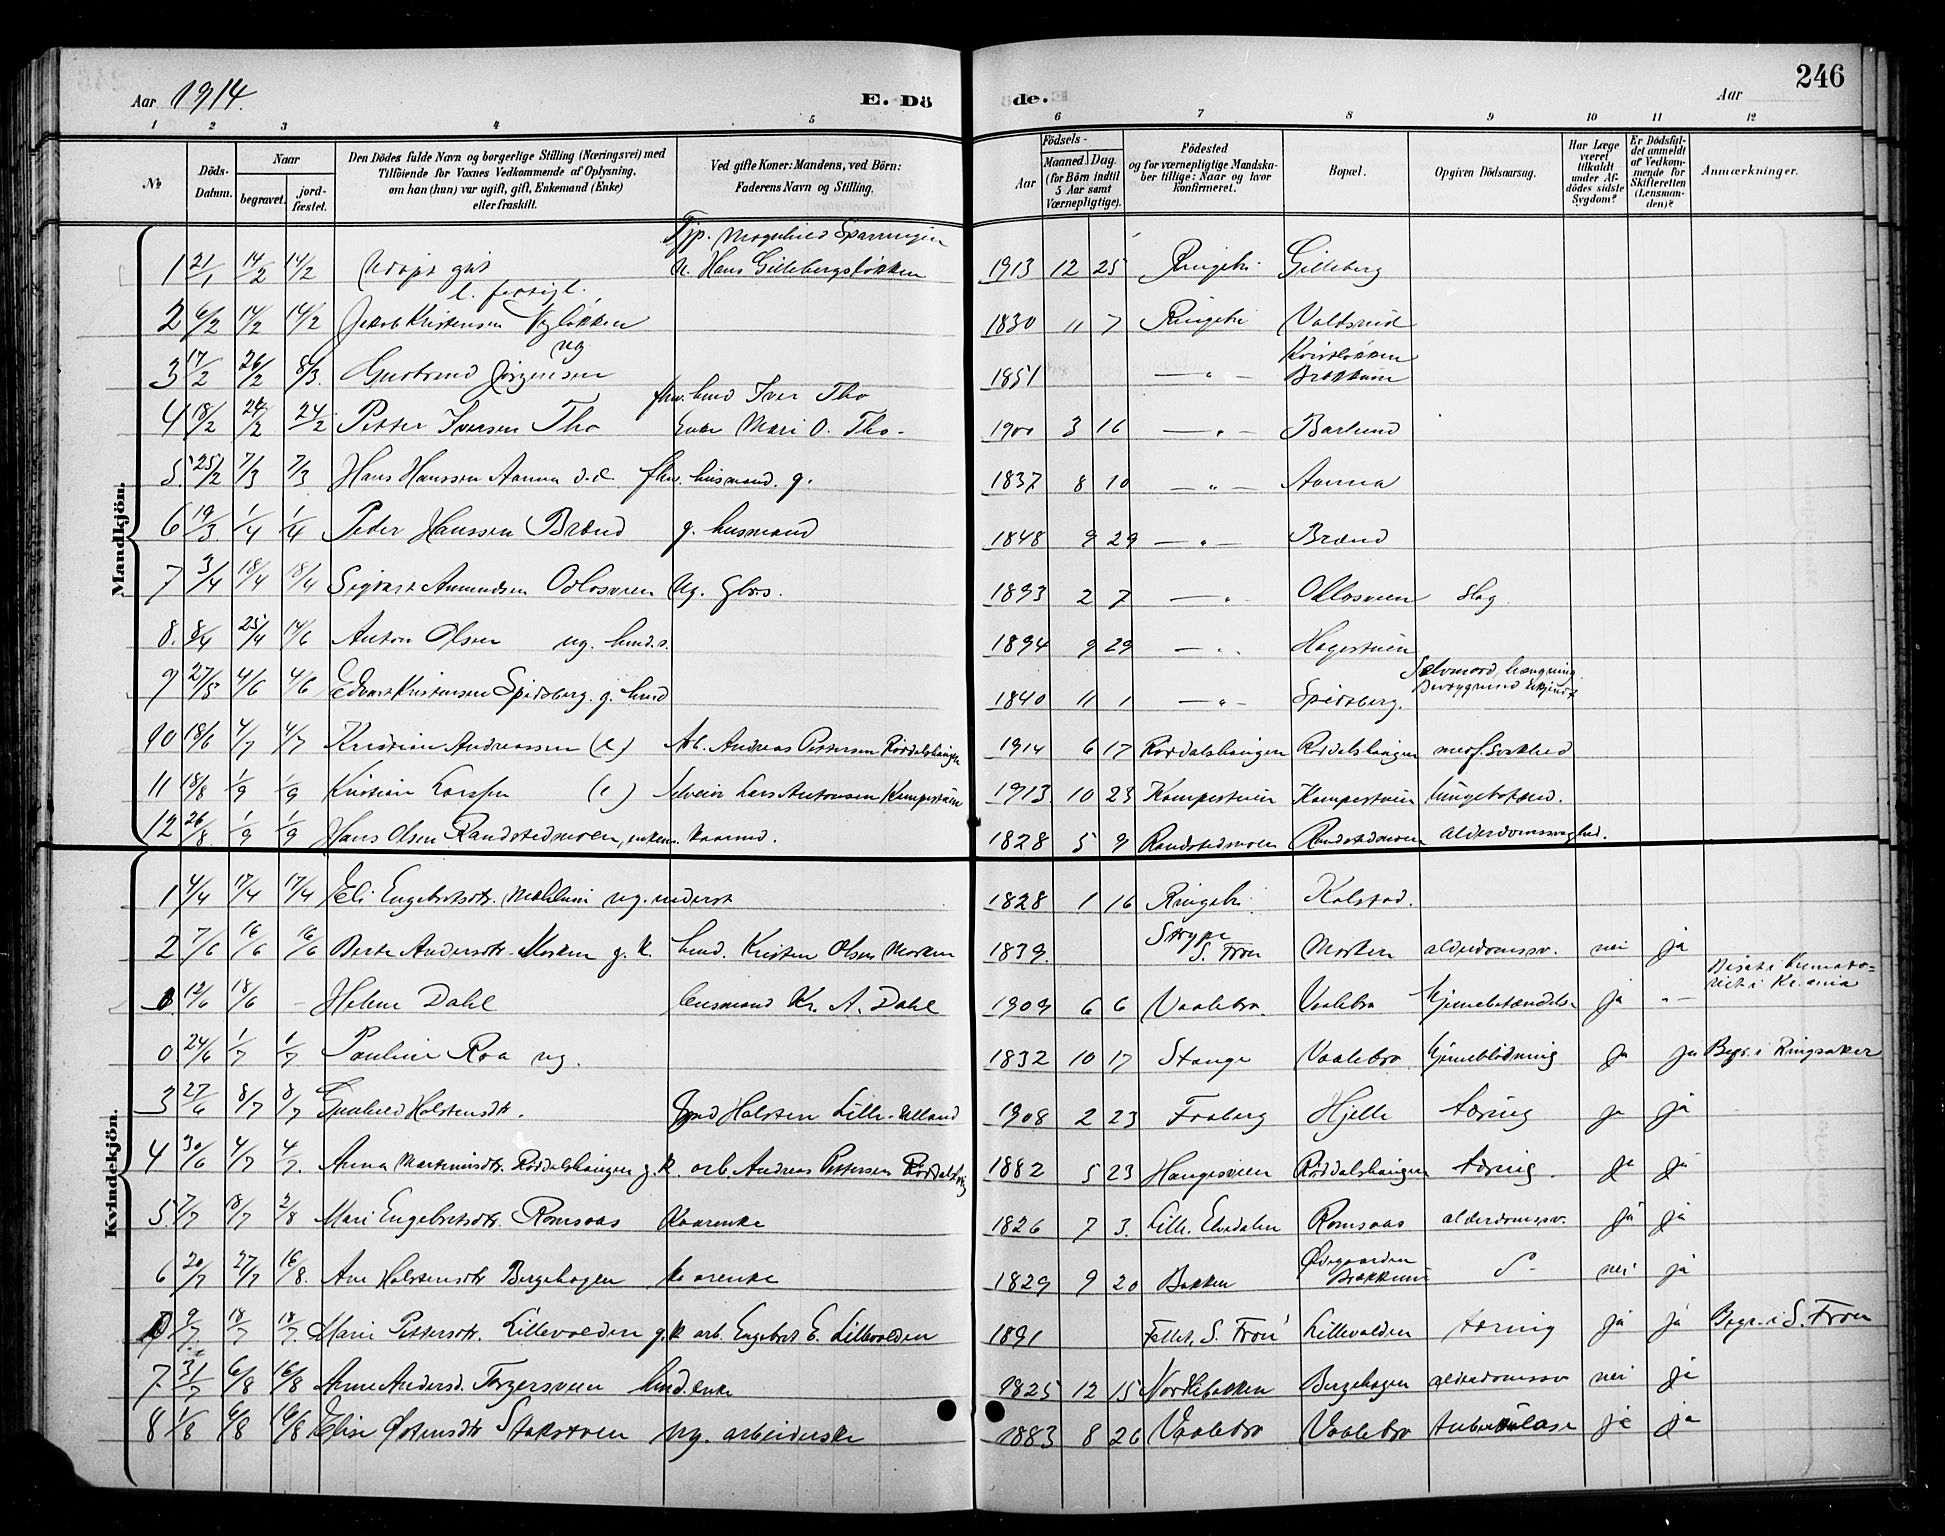 246
Aar 1914.
E. Dö
de.
Aar
1 2 3 4 5 6 7 8 9 10 11 12
№
Döds-Datum.
Naar
begravet.
jord-fæstet.
Den Dödes fulde Navn og borgerlige Stilling (Næringsvei) med Tilföiende for Voxnes Vedkommende af Oplysning, om han (hun) var ugift, gift, Enkemand (Enke) eller fraskilt.
Ved gifte Koner: Mandens, ved Börn: Faderens Navn og Stilling.
Födsels-
Aar
Maaned. Dag.
(for Börn indtil 5 Aar samt Værnepligtige).
Födested og for værnepligtige Mandskaber tillige: Naar og hvor konfirmeret.
Bopæl.
Opgiven Dödsaarsag.
Har Læge været tilkaldt under Afdödes sidste Sygdom?
Er Dödsfaldet anmeldt af Vedkommende for Skifteretten (Lensmanden)?
Anmærkninger.
Mandkjön.
1 21/1 14/2 14/2 Udöpt gut N. Hans Gillebergsløkken 1913 12 25 Ringebu Gilleberg
2 6/2 14/2 14/2 Jakob Kristensen Vegløkken l. fattigl. 1830 11 7 Ringebu Voldsrud
3 17/2 26/2 8/3. Gudbrand Jörgensen ug. 1851 — " — Brækkum
4 18/2 24/2 24/2 Petter Iversen Tho fhv. hmd Iver Tho Enke Mari O. Tho - 1900 3 16 — " — Barlund
5 25/2 7/3 7/3 Hans Hanssen Aanna fhv. husmand. g. 1837 8 10 — " — Aanna
6 19/3 1/4 1/4 Peder Hanssen Brænd g. husmand 1848 9 29 — " — Brænd
7 3/4 18/4 18/4 Sigvart Amundsen Odlosveen Ug. Gbrs. 1893 2 7 — " Odlosveen Slag.
8. 8/4 25/4 14/6 Anton Olsen ug. hmd.s. 1894 9 29 — " Hagestuen
9 27/5 4/6 4/6 Edvart Kristensen Spidsberg. g. hmd 1840 11 1 — " — Spidsberg. Selvmord, hængning.
10 18/6 4/7 4/7 Kristian Andreassen (e) Arb. Andreas Pettersen Röddalshaugen 1914 6 17 Röddalshaugen Röddalshaugen medf. svakhed
11 18/8 1/9 1/9 Kristian Larssen (e) Selveier Lars Antonsen Kampestuen 1913 10 23 Kampestuen Kampestuen lungebetænd.
12 26/8 1/9 1/9 Hans Olsen Randstedmoen, enkem. kaarmd. 1828 5 9 Randstedmoen Randstedmoen alderdomssvaghed.
Kvindekjön.
1 4/4 17/4 17/4 Eli Engebretsdtr. Mæhlum ug. underst 1828 1 16 Ringebu Kolstad.
2 7/6 16/6 16/6 Berte Andersdtr. Morken g. k. hmd. Kristen Olsen Morken 1839. S. Fron Morken alderdomssv. nei ja
0 12/6 18/6 — Helene Dahl lensmand Kr. A. Dahl 1909 6 6 Vaalebro. Vaalebro hjernebetændelse ja " — Bisat i Krematoriet i Kr.ania
0 24/6 1/7 1/7 Pauline Roa ug. 1832 10 17 Stange Vaalebro hjerneblödning ja ja Begr. i Ringsaker
3 27/6 8/7 8/7 Gunhild Holstensdtr. Gmd Holsten Lille-Ulland 1908 2 23 Faaberg Hjelle tæring ja ja
4 30/6 4/7 4/7. Anna Martinusdtr. Röddalshaugen g. k. arb. Andreas Pettersen Röddalshaug 1882 5 23 Haugesveen Röddalshaugen tæring. ja ja
5 7/7 18/7 2/8 Mari Engebretsdtr. Romsaas Kaarenke 1826 7 3. Lille Elvedalen Romsaas alderdomssv. ja ja
6 20/7 27/7 16/8. Ane Holstensdtr Bergehagen kaarenke 1829 9 20 Bakken Ødegaarden Brækkum S - nei ja
0 9/7 18/7 18/7 Marie Pettersdtr. Lillevolden g.k arb. Engebret E. Lillevolden 1891 Fellet, S. Fron Lillevolden tæring ja ja Begr. i S. Fron
7. 31/7 6/8 16/8 Anne Andersd. Torgersveen hmd.enke 1825 12 15 Nordlibakken Bergehagen alderdomssv nei ja
8 1/8 6/8 16/8 Elise Østensdtr Stakstoen ug. arbeiderske 1883 8 26 Vaalebro Vaalebro tuberkulose ja ja